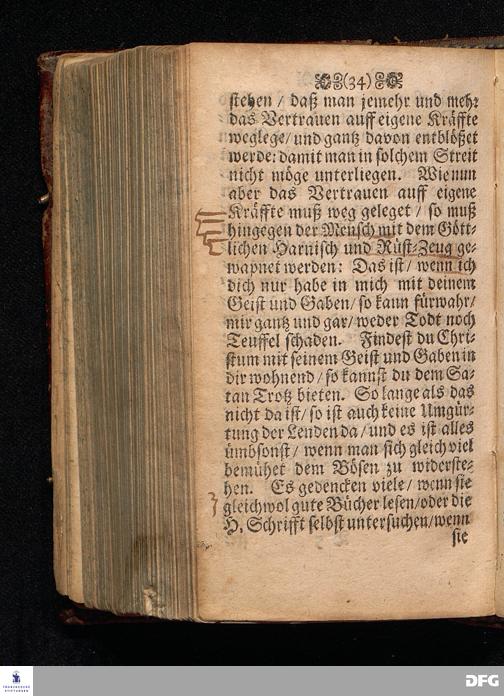 (34)
stehen / daß man jemehr und mehr
das Vertrauen auff eigene Kräffte
weglege / und gantz davon entblößet
werde: damit man in solchem Streit
nicht möge unterliegen. Wie nun
aber das Vertrauen auff eigene
Kräffte muß weg geleget / so muß
hingegen der Mensch mit dem Gött-
lichen Harnisch und Rüst-Zeug ge-
wapnet werden: Das ist / wenn ich
dich nur habe in mich mit deinem
Geist und Gaben / so kann fürwahr /
mir gantz und gar / weder Todt noch
Teuffel schaden. Findest du Chri-
stum mit seinem Geist und Gaben in
dir wohnend / so kannst du dem Sa-
tan Trotz bieten. So lange als das
nicht da ist / so ist auch keine Umgür-
tung der Lenden da / und es ist alles
ümbsonst / wenn man sich gleich viel
bemühet dem Bösen zu widerste-
hen. Es gedencken viele / wenn sie
gleichwol gute Bücher lesen / oder die
H. Schrifft selbst untersuchen / wenn
sie
FRANCKESCHE
STIFTUNGEN
DFG